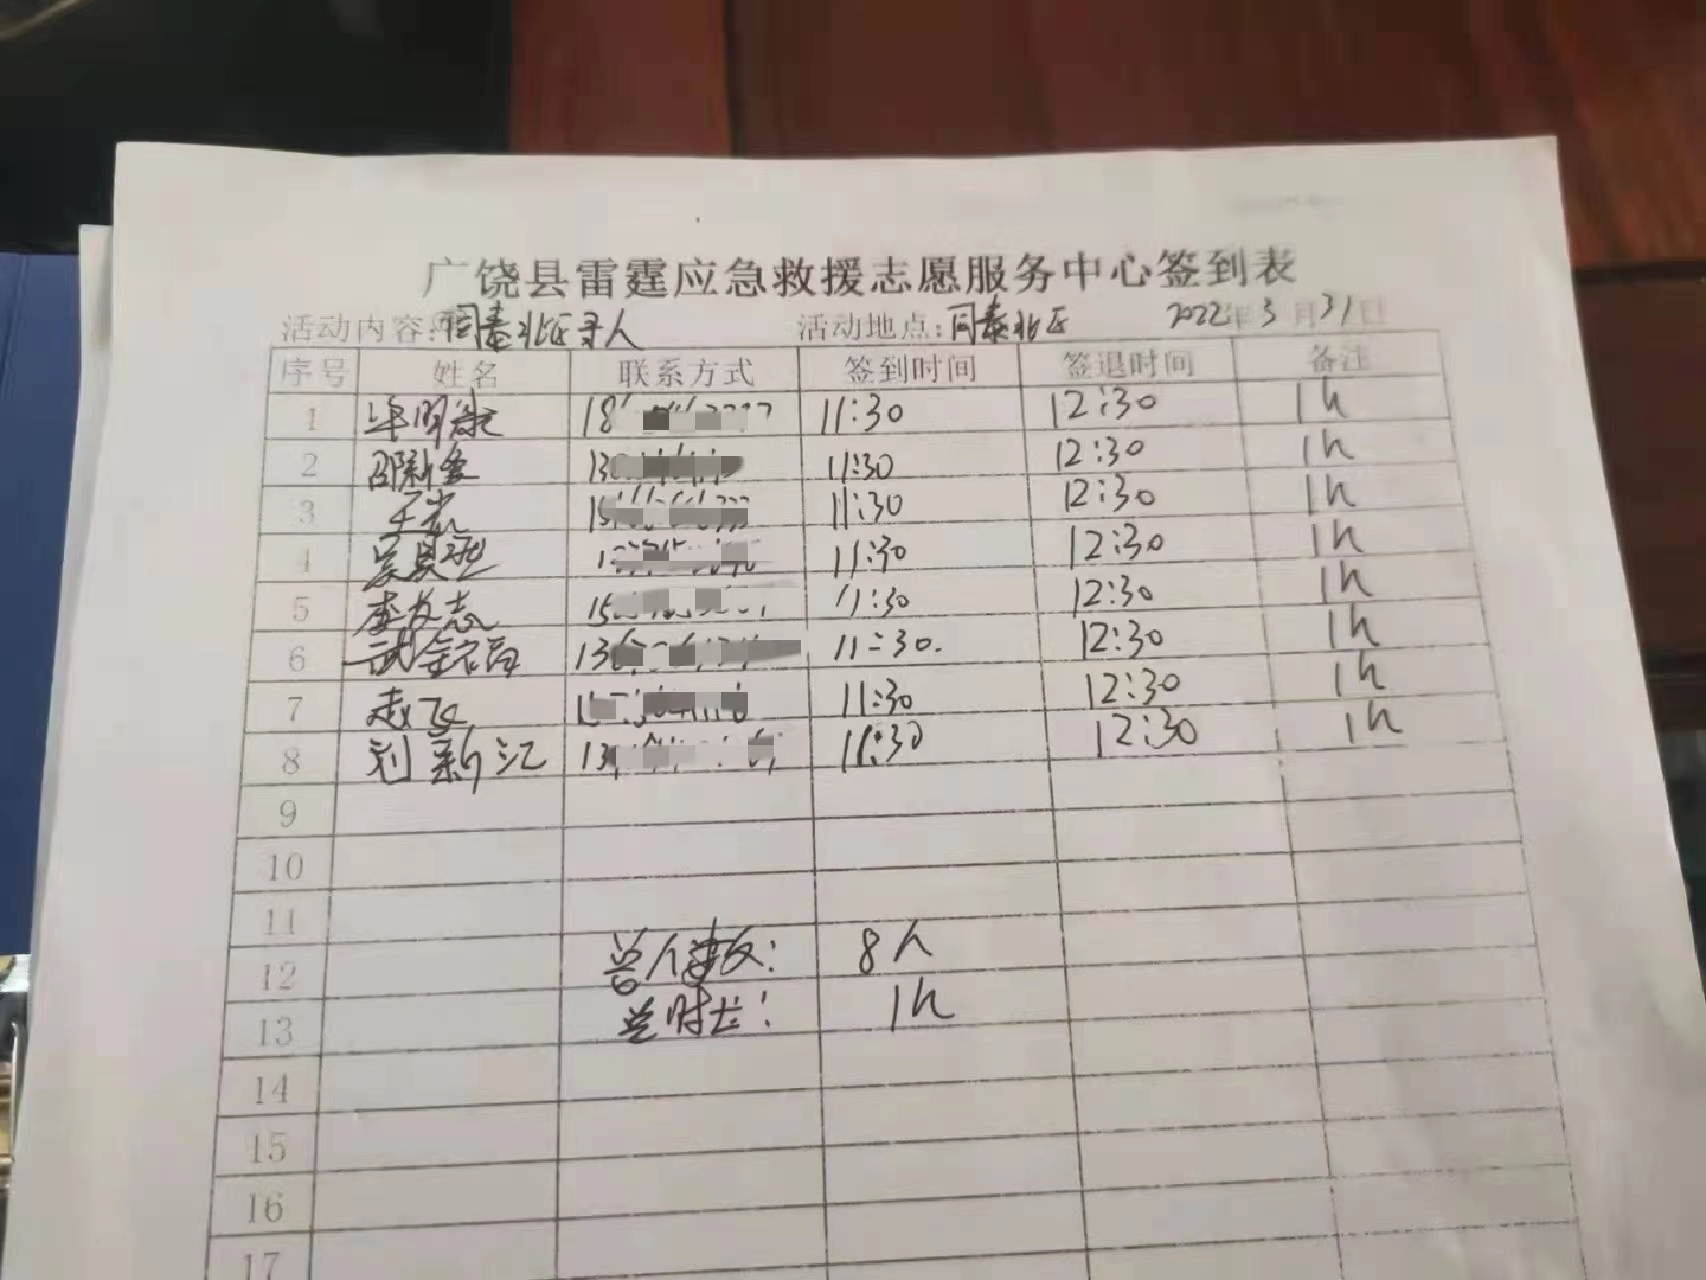 广饶县雷霆应急救援志愿服务中心签到表
活动内容:同泰北区寻人 活动地点:同泰北区 2022年3月31日
序号 姓名 联系方式 签到时间 签退时间 备注
1 18 11:30 12:30 1h
2 邵新金 130 11:30 12:30 1h
3 15 11:30 12:30 1h
4 11:30 12:30 1h
5 李友志 15 11:30 12:30 1h
6 136 11:30. 12:30 1h
7 赵飞 11:30 12:30 1h
8 刘新江 13 11:30 12:30 1h
9
10
11
12 总人数: 8人
13 总时长: 1h
14
15
16
17